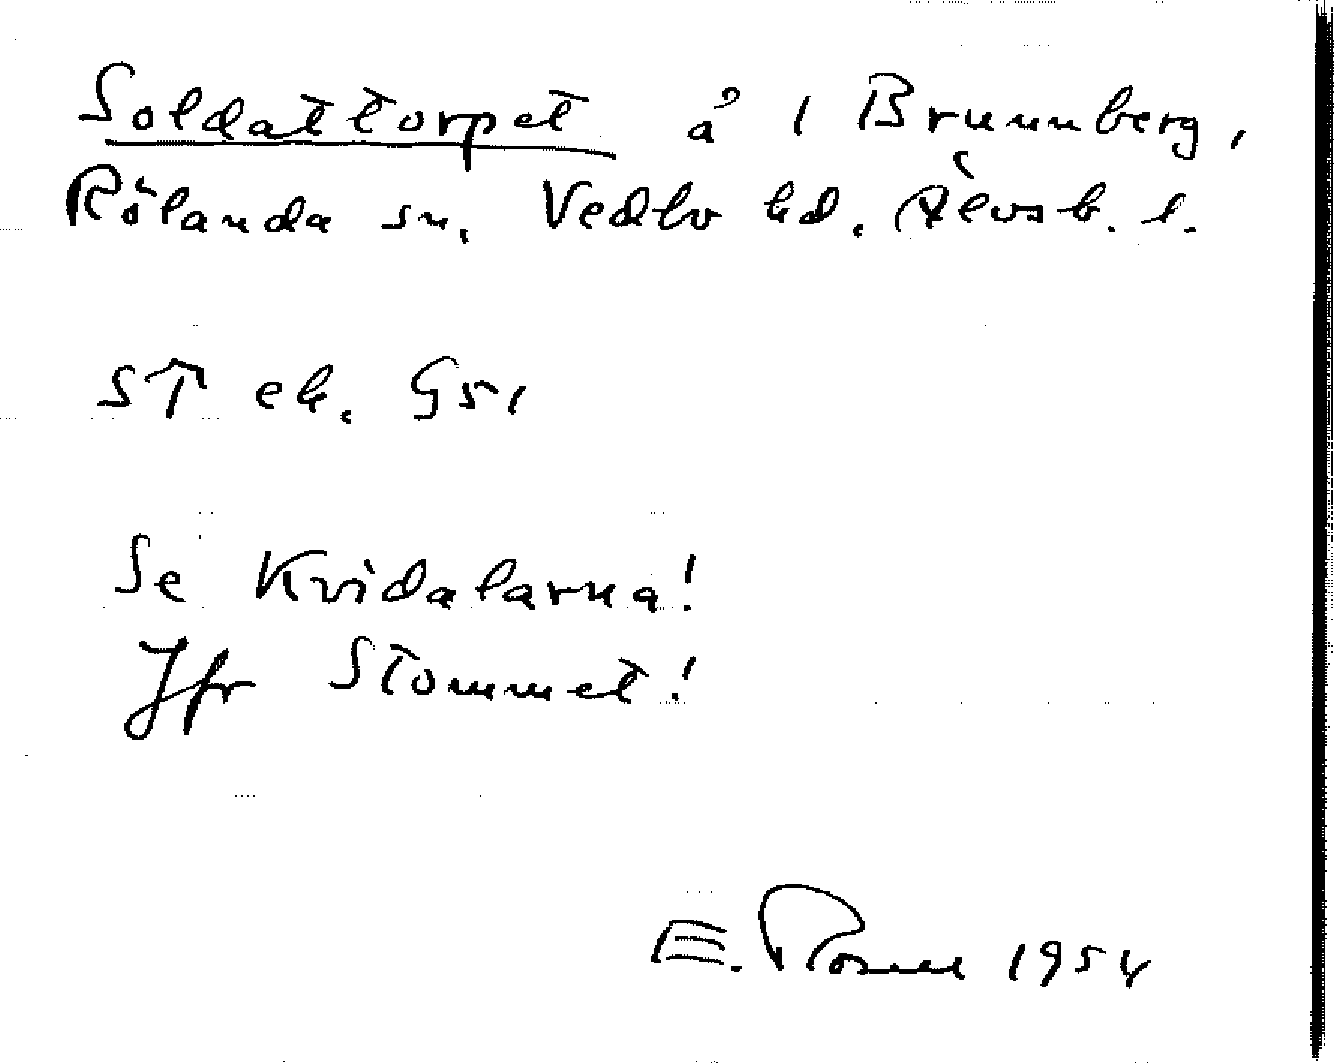 Soldattorpet å 1 Brunnberg,
Rölanda sn. Vedbo hd. Älvsb. l.
ST ek. G51
Se Kvidalarna!
Jfr Stommet!
E. 1954